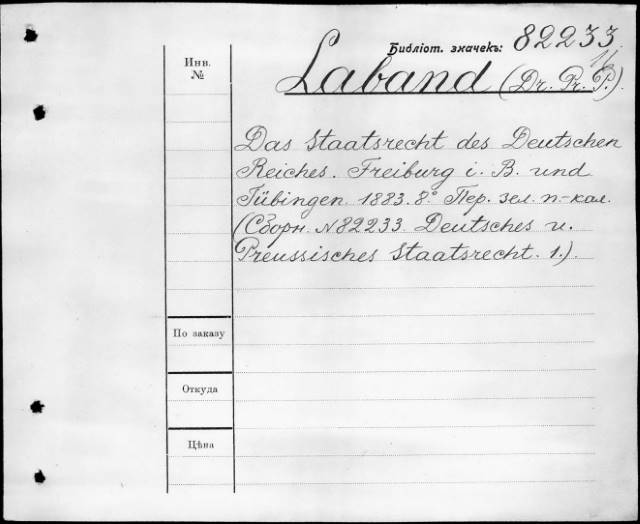 Библіот. значекъ: 82233
Инв.
№
Laband (Dr. Pr. P.).
Das Staatsrecht des Deutschen
Reiches. Freiburg i. B. und
Tübingen. 1883. 8º Пер. зел. п-кал.
(Сборн. №82233. Deutsches u.
Preussisches Staatsrecht. 1.).
По заказу
Откуда
Цѣна